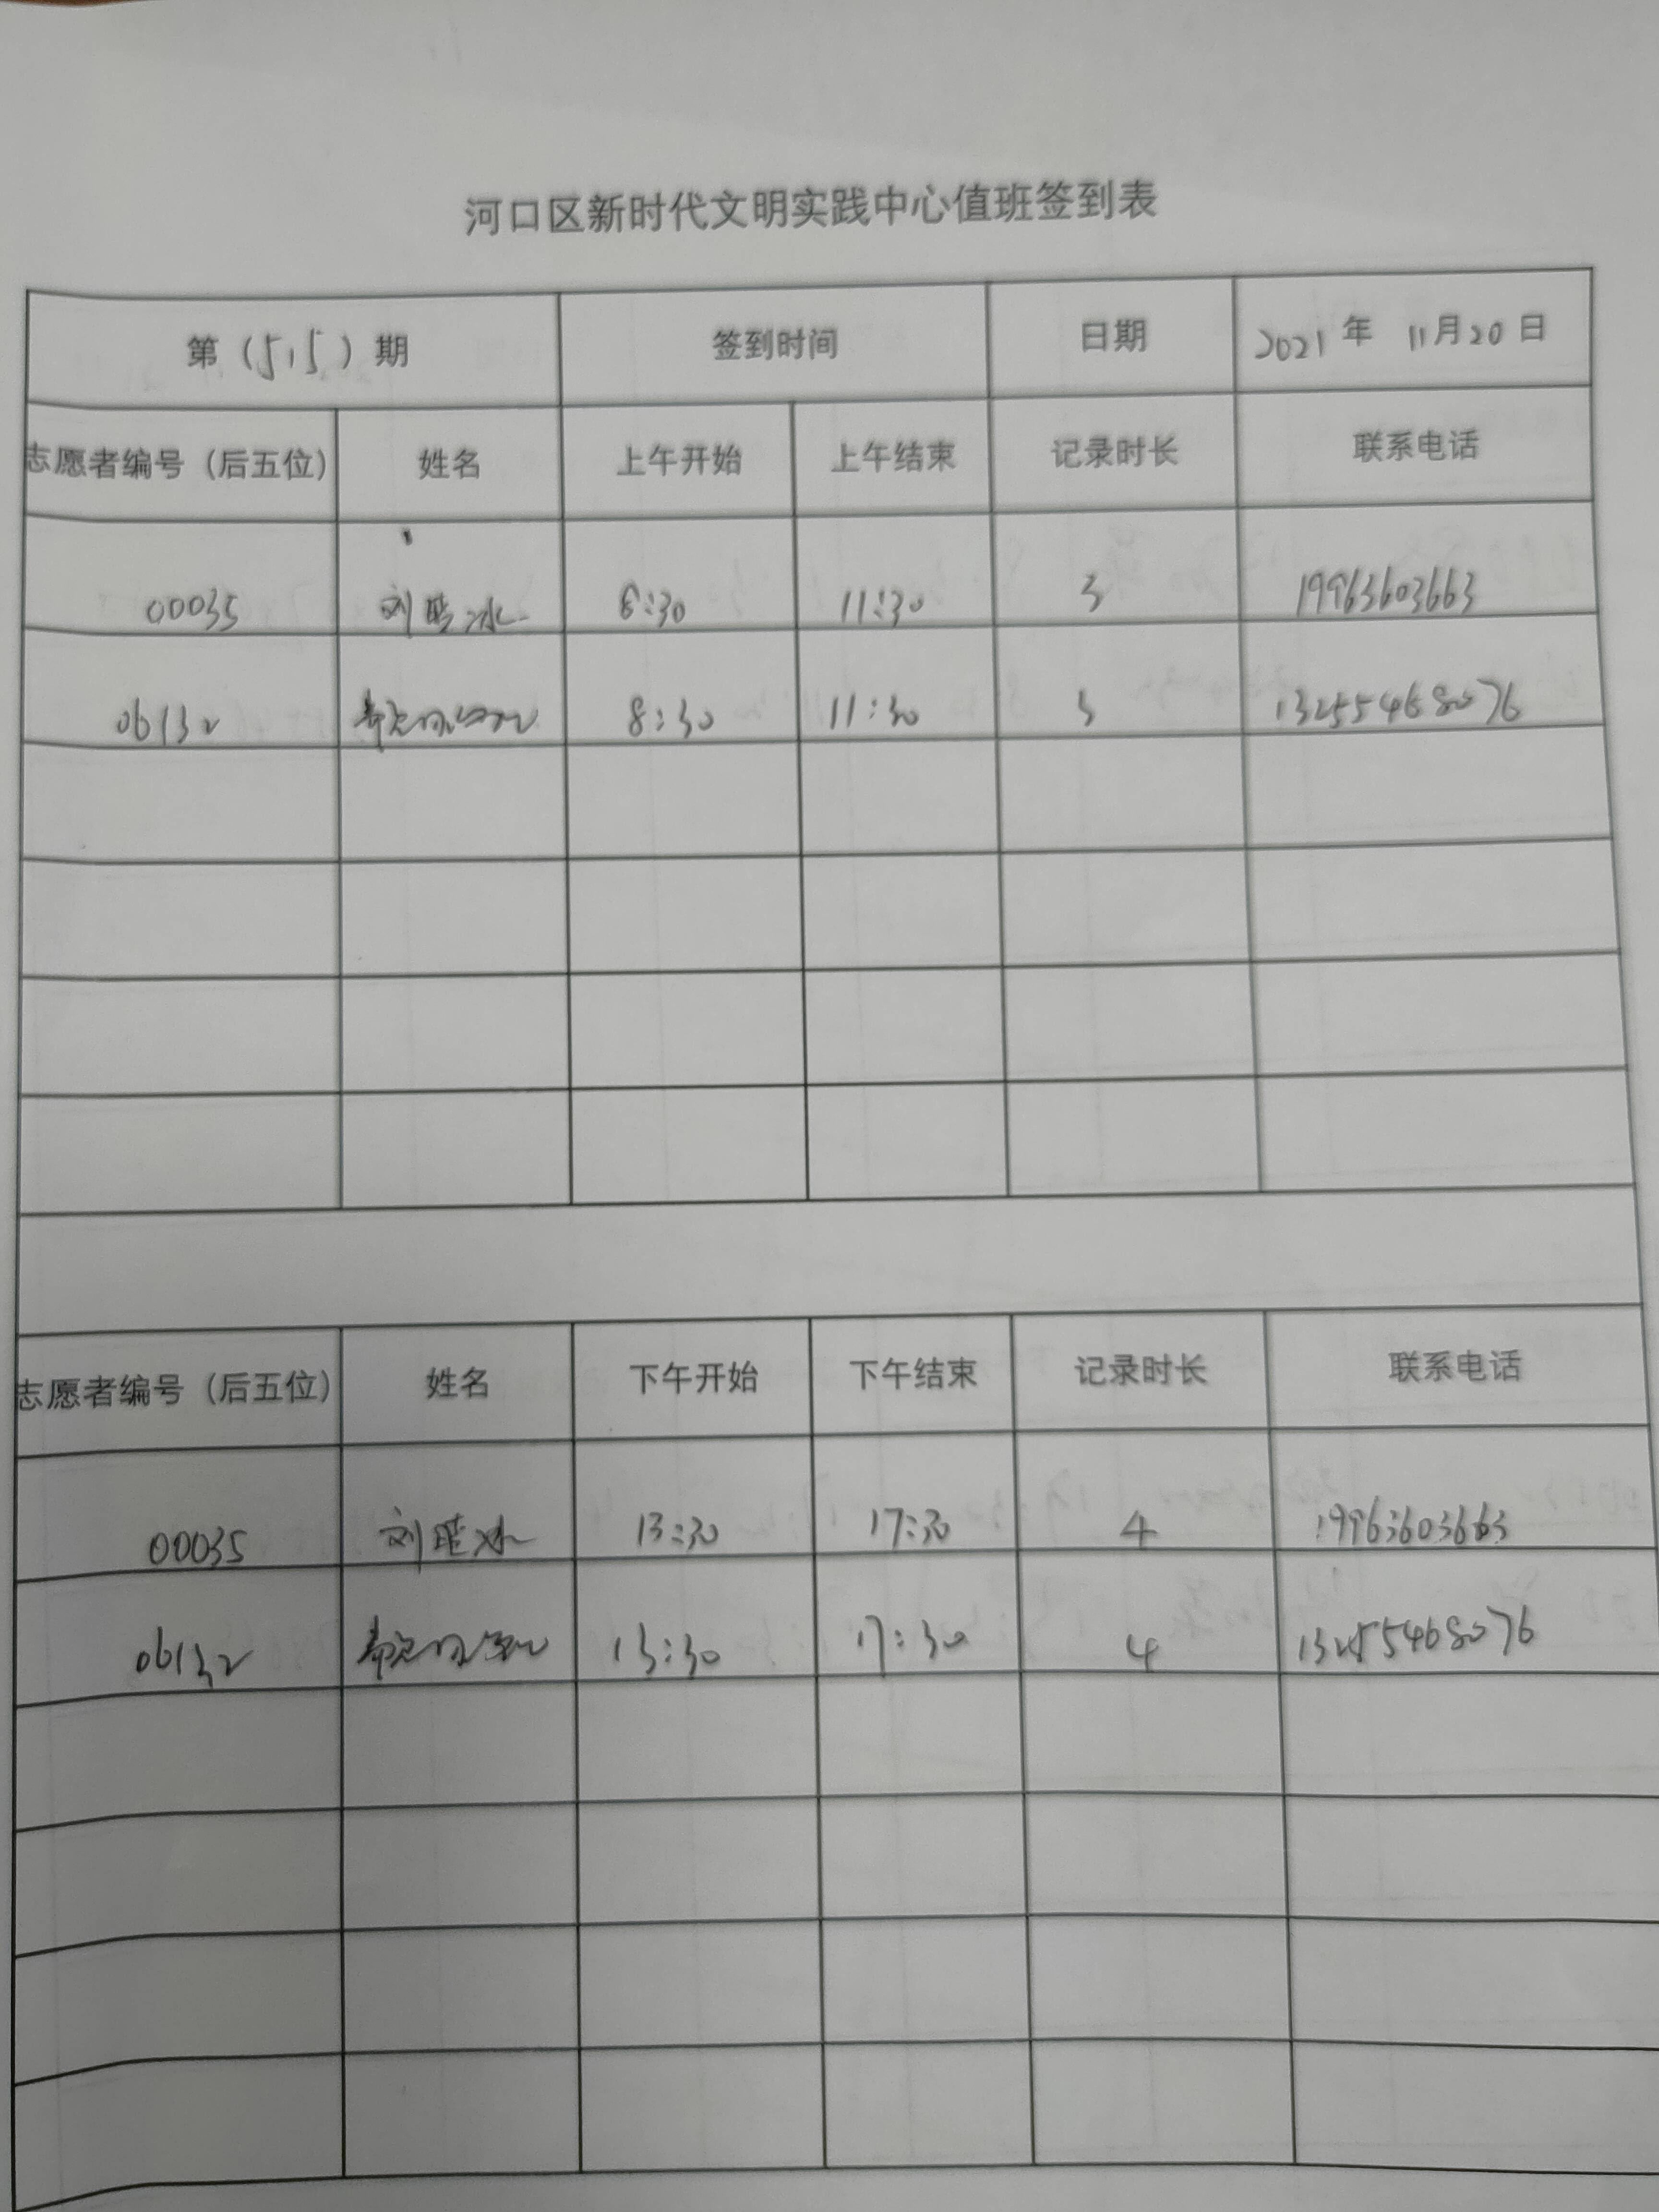 河口区新时代文明实践中心值班签到表
第（515）期 签到时间 日期 2021年 11月20日
志愿者编号（后五位） 姓名 上午开始 上午结束 记录时长 联系电话
00035 刘 冰 8:30 11:30 3 19963603663
06132 8:30 11:30 3 13255468076
志愿者编号（后五位） 姓名 下午开始 下午结束 记录时长 联系电话
00035 刘 冰 13:30 17:30 4 19963603663
06132 13:30 17:30 4 13255468076